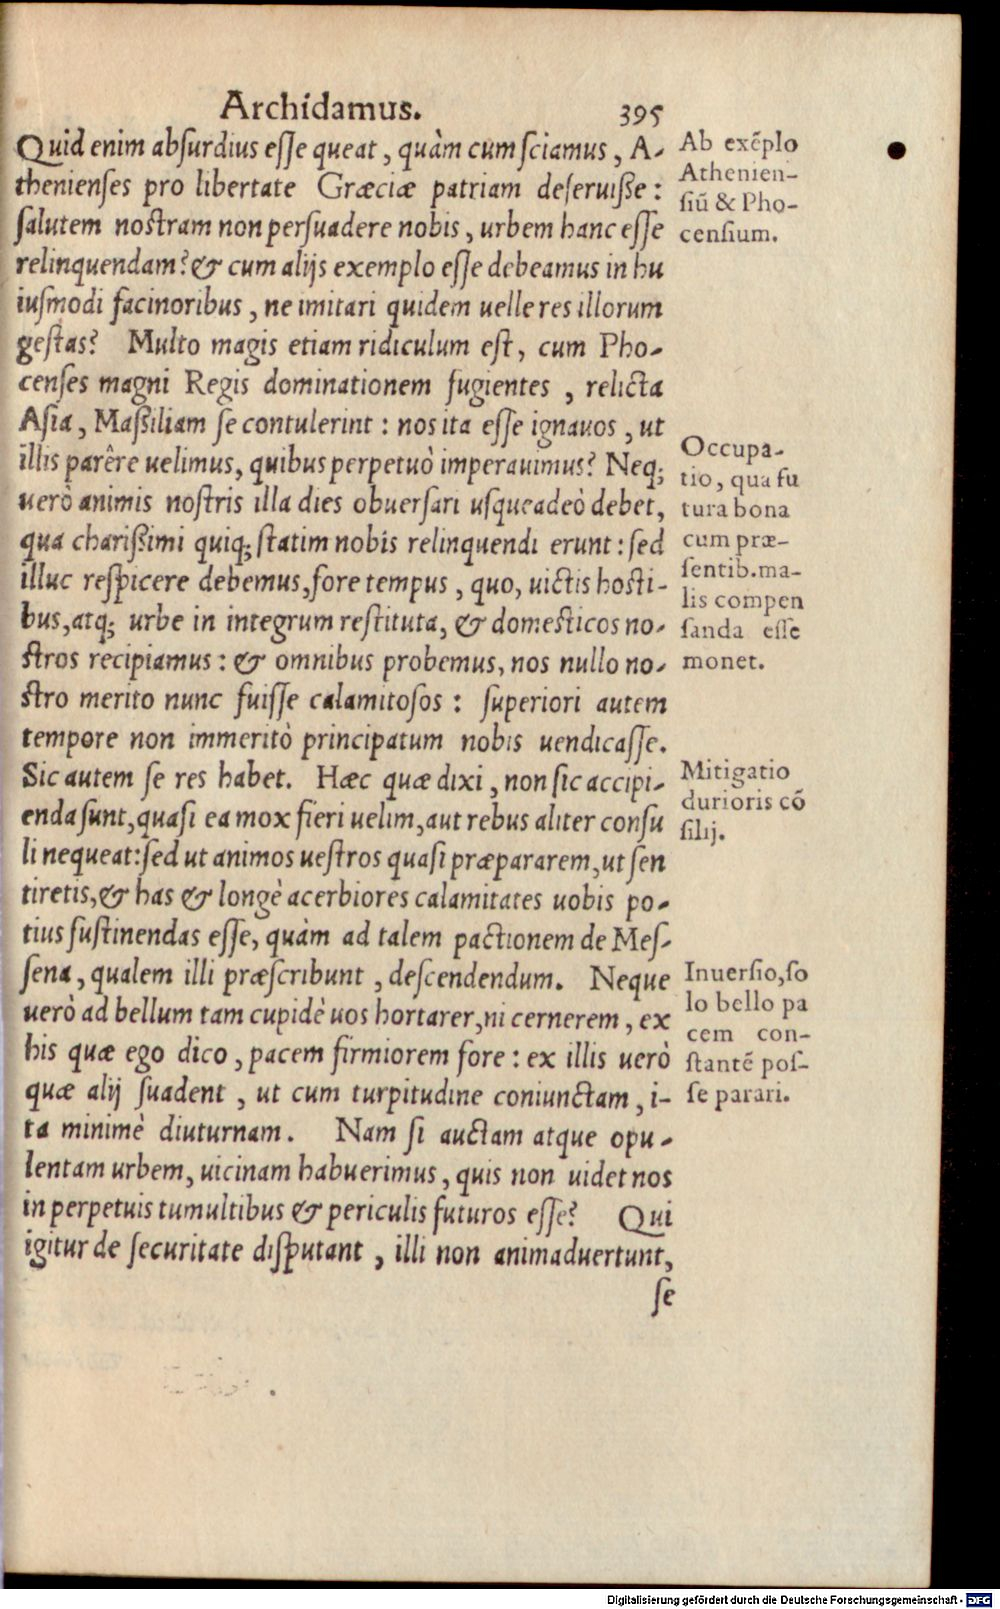 Archidamus. 395
Quid enim absurdius esse queat, quàm cum sciamus, A-
thenienses pro libertate Græciæ patriam deseruisse:
salutem nostram non persuadere nobis, urbem hanc esse
relinquendam? & cum alijs exemplo esse debeamus in hu
iusmodi facinoribus, ne imitari quidem uelle res illorum
gestas? Multo magis etiam ridiculum est, cum Pho-
censes magni Regis dominationem fugientes, relicta
Asia, Maßiliam se contulerint: nos ita esse ignauos, ut
illis parêre uelimus, quibus perpetuò imperauimus? Neq;
uerò animis nostris illa dies obuersari usqueadeò debet,
qua charißimi quiq; statim nobis relinquendi erunt: sed
illuc respicere debemus, fore tempus, quo, uictis hosti-
bus, atq; urbe in integrum restituta, & domesticos no-
stros recipiamus: & omnibus probemus, nos nullo no-
stro merito nunc fuisse calamitosos: superiori autem
tempore non immeritò principatum nobis uendicasse.
Sic autem se res habet. Hæc quæ dixi, non sic accipi-
enda sunt, quasi ea mox fieri uelim, aut rebus aliter consu
li nequeat: sed ut animos uestros quasi præpararem, ut sen
tiretis, & has & longè acerbiores calamitates uobis po-
tius sustinendas esse, quàm ad talem pactionem de Mes-
sena, qualem illi præscribunt, descendendum. Neque
uerò ad bellum tam cupidè uos hortarer, ni cernerem, ex
his quæ ego dico, pacem firmiorem fore: ex illis uerò
quæ alij suadent, ut cum turpitudine coniunctam, i-
ta minimè diuturnam. Nam si auctam atque opu-
lentam urbem, uicinam habuerimus, quis non uidet nos
in perpetuis tumultibus & periculis futuros esse? Qui
igitur de securitate disputant, illi non animaduertunt,
se
Ab exẽplo
Athenien-
siũ & Pho-
censium.
Occupa-
tio, qua fu
tura bona
cum præ-
sentib. ma-
lis compen
sanda esse
monet.
Mitigatio
durioris cõ
silij.
Inuersio, so
lo bello pa
cem con-
stantẽ pos-
se parari.
Digitalisierung gefördert durch die Deutsche Forschungsgemeinschaft - DFG